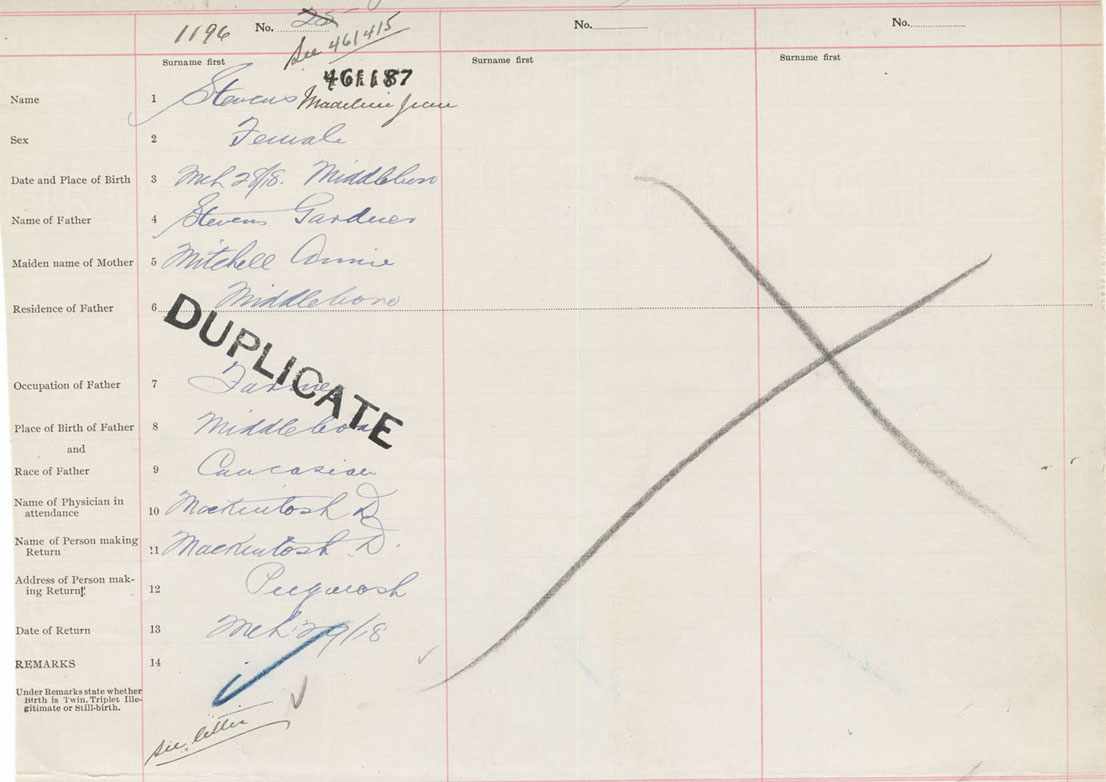 1196 No. 25 No. No.
See 461415
Surname first Surname first Surname first
461187
Name 1 Stevens Madeline Jean
Sex 2 Female
Date and Place of Birth 3 Mch 28/18. Middleboro
Name of Father 4 Stevens Gardner
Maiden name of Mother 5 Mitchell Annie
Residence of Father 6 Middleboro
DUPLICATE
Occupation of Father 7 Farmer
Place of Birth of Father 8 Middleboro
and
Race of Father 9 Caucasian
Name of Physician in
attendance 10 Mackintosh D
Name of Person making
Return 11 Mackintosh D.
Address of Person mak-
ing Return: 12 Pugwash
Date of Return 13 Mch 29/18
REMARKS 14
Under Remarks state whether
Birth is Twin, Triplet Ille-
gitimate or Still-birth.
see letter